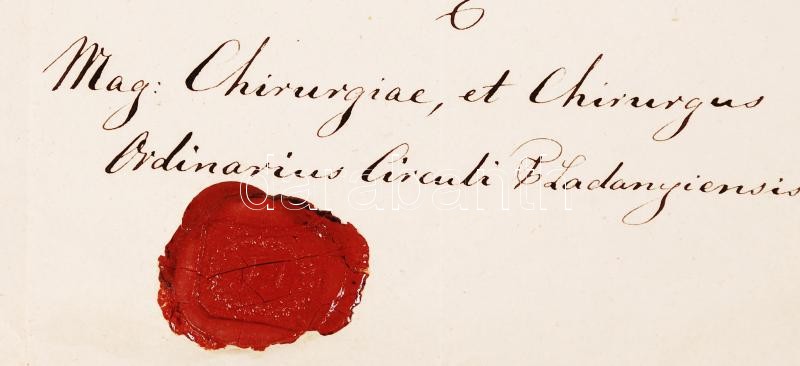 Mag: Chirurgiae, et Chirurgus
Ordinarius Circuli P Ladanyiensis
darabanth